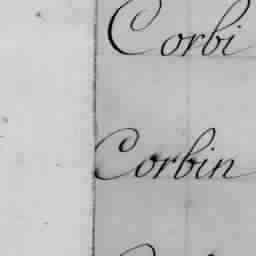 Corbi
Corbin